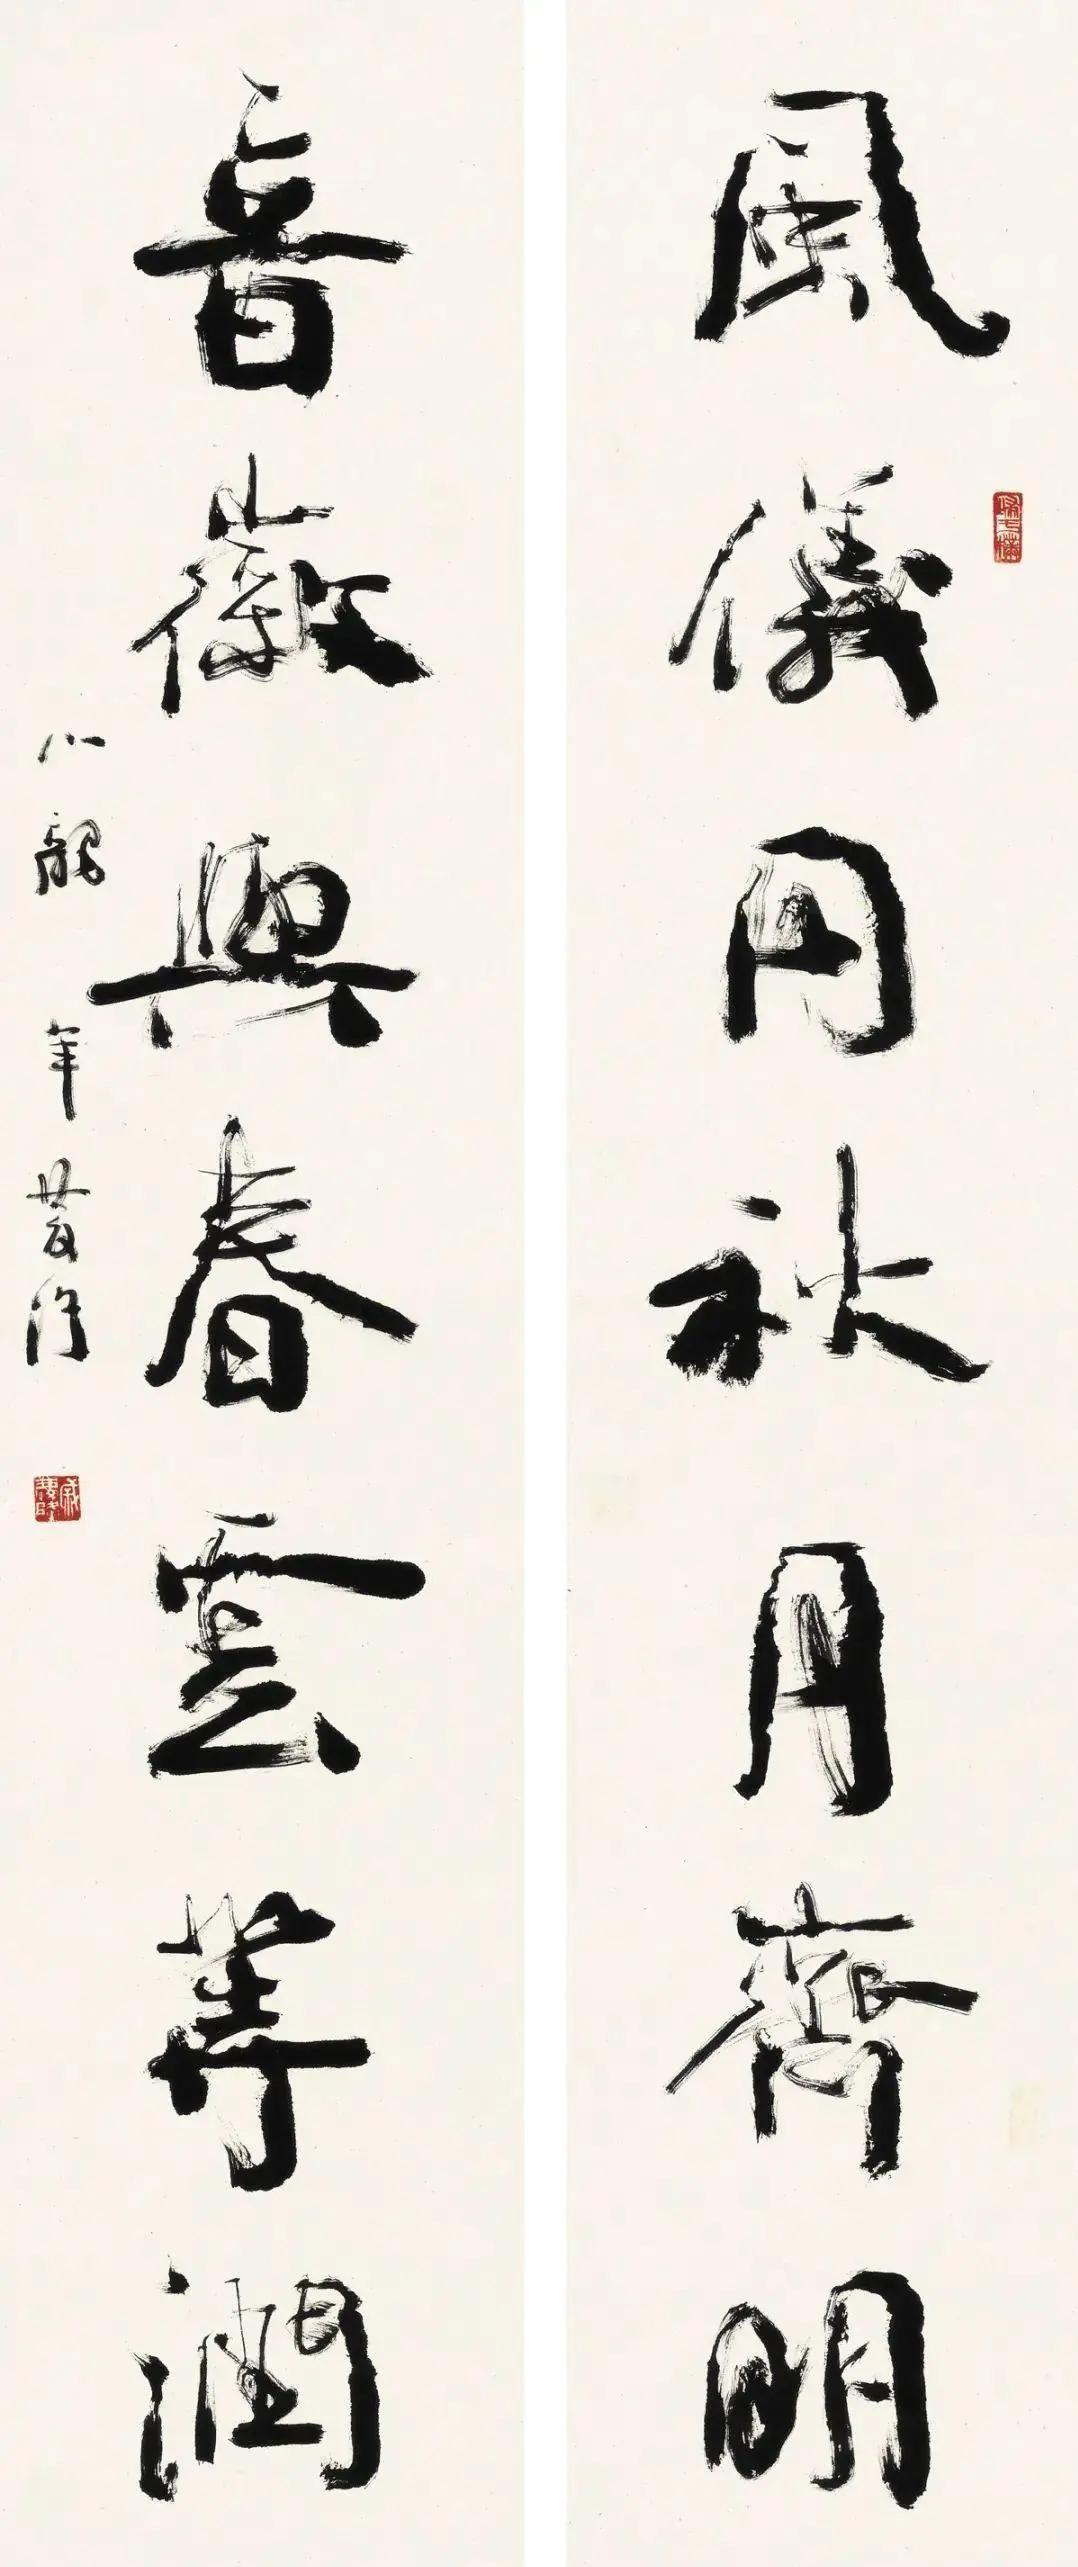 風儀同秋月齊明
音徽與春雲等潤
小龍年